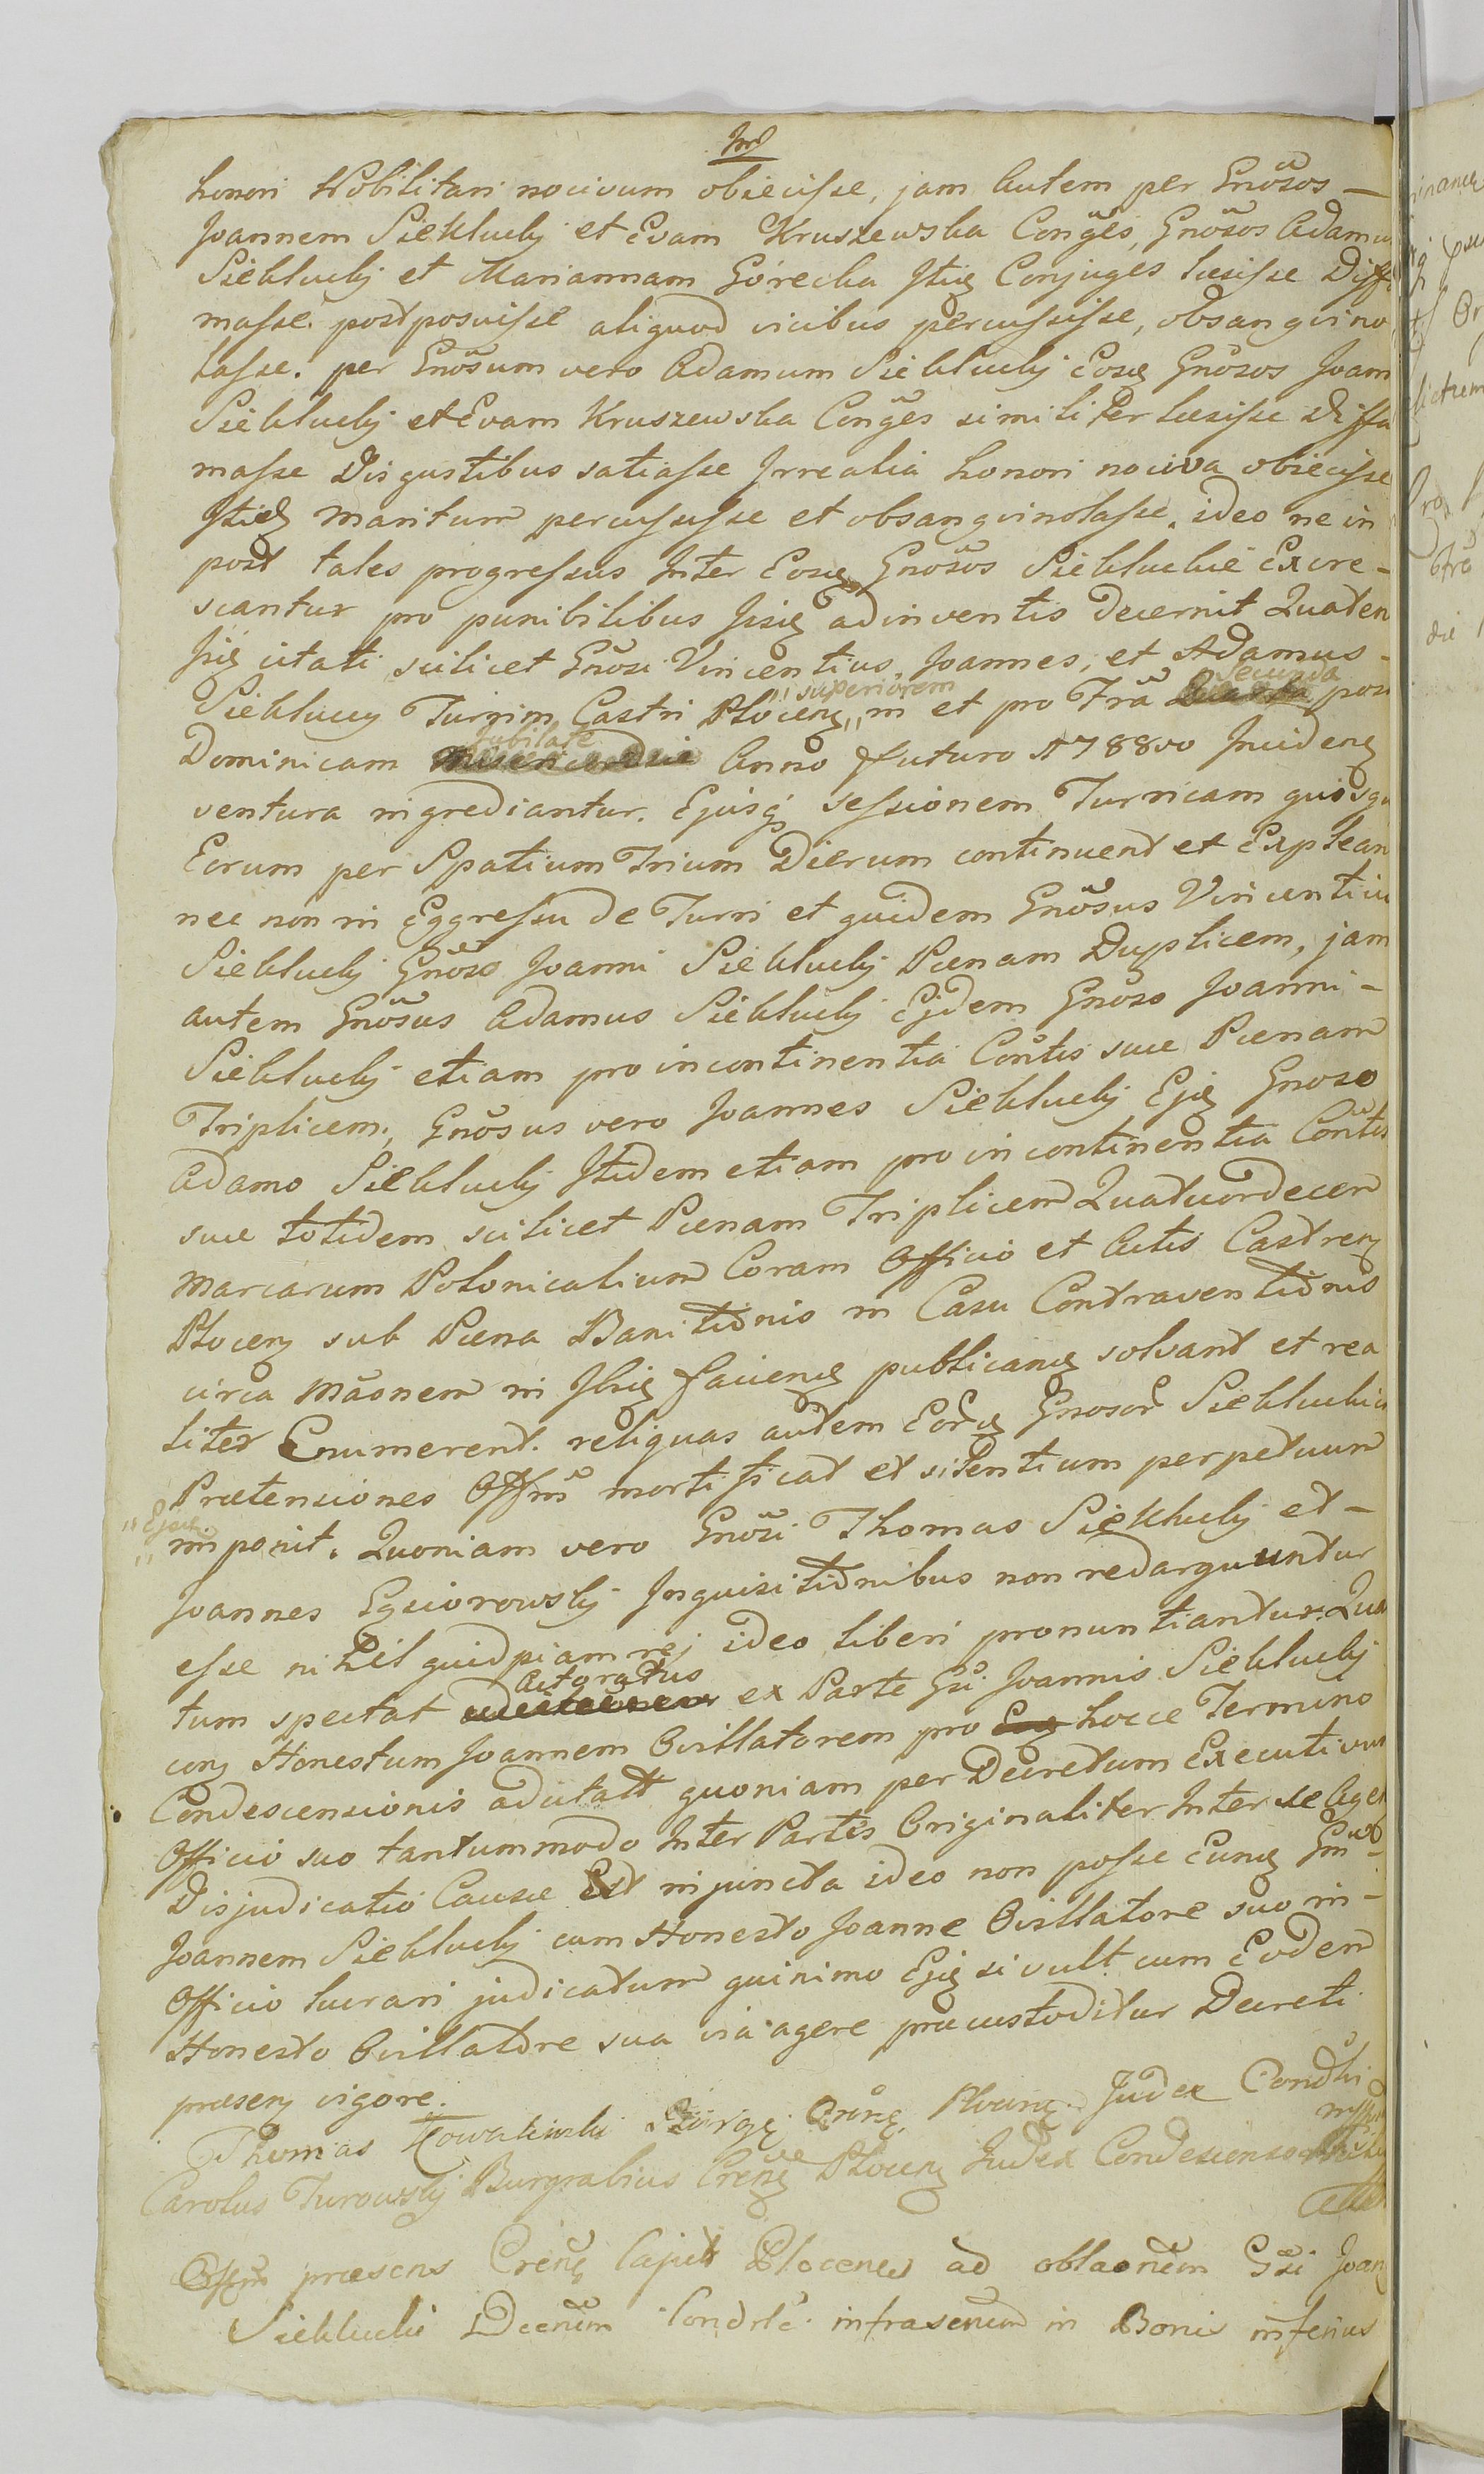 honori Nobilitari nocivum obiecisse, jam autem per Gnõsos —
Joannem Siekłucky et Evam Kruszewska Conges, Gnõsos Adamu
Siekłucky et Mariannam Górecka Itiq Conjuges læsisse Diffa
masse. postposuisse aliquod vicibus percussisse, obsangvino
tasse. per Gnõsum vero Adamum Siekłucky Eosq Gnõsos Joan
Siekłucky et Evam Kruszewska Conges similiter læsisse Diffa
masse Disgustibus satiasse Irrealia honori nociva obiecisse
Itiq maritum percussisse et obsangvinolasse. ideo ne in
post tales progressus Inter Eosq Gnõsos Siekłuckie Excre-
scantur pro punibilibus Ipiq adinventis Decernit Quaten
Ipiq citati scilicet Gnõsi Vincentius, Joannes, et Adamus -
"superiorem secunda
Siekłuccy Turrim Castri Płocenq " in et pro Frã post
Jubilate
Dominicam Anno futuro 1788vo Incidenq
ventura ingrediantur. Ejusq sessionem Turricam quisq
Eorum per Spatium Trium Dierum continuent et Explean
nec non in Eggressu de Turri et quidem Gnõsus Vincentiu
Siekłucky Gnõso Joanni Siekłucky Pænam Duplicem, jam
autem Gnõsus Adamus Siekłucky Ejdem Gnõso Joanni -
Siekłucky etiam pro incontinentia Contis suæ Pænam
Triplicem., Gnõsus vero Joannes Siekłucky Ejq Gnoso
Adamo Siekłucky Itidem etiam pro incontinentia Contis
suæ totidem scilicet Pænam Triplicem Quatuordecem
Marcarum Polonicalium Coram Officio et Actis Castrenq
Płocenq sub Pæna Banitionis in Casu Contraventionis
circa mãonem in Ibiq faciendq publicandq solvant et rea
liter Enumerent. reliquas autem Eorq Gnosor Siekłuckic
Prætensiones Offm mortificat et silentium perpetuum
"Ejsq
" imponit. Quoniam vero Gnõsi Thomas Siekłucky et -
Joannes Gąsiorowsky Inquisitionibus non redarguuntur
esse nihil quidpiam rej ideo liberi pronuntiantur. Quan
actoratus
tum spectat ex Parte Gsi Joannis Siekłucky
conq Honestum Joannem Ovillatorem pro hocce Termino
Condescensionis adcitatt quoniam per Decretum Executivum
Officio suo tantummodo Inter Partes Originaliter Inter se Agen
Disjudicatio Causæ Est injuncta ideo non posse Eundq Gm
Joannem Siekłucky cum Honesto Joanne Ovillatore suo in -
Officio lucrari judicatum quinimo Ejq si vult cum Eodem
Honesto Ovillatore sua via agere præcustoditur Decreti
præsenq vigore.
Thomas Kowalewski Płocenq Judex
Carolus Turowsky Burgrabius Crensq Płocenq Judex Condescenso
præsens Crenq Capit Plocenes ad oblaonem Gsi Joan
Siekłucki Decrum infrascrum in Bonis inferius